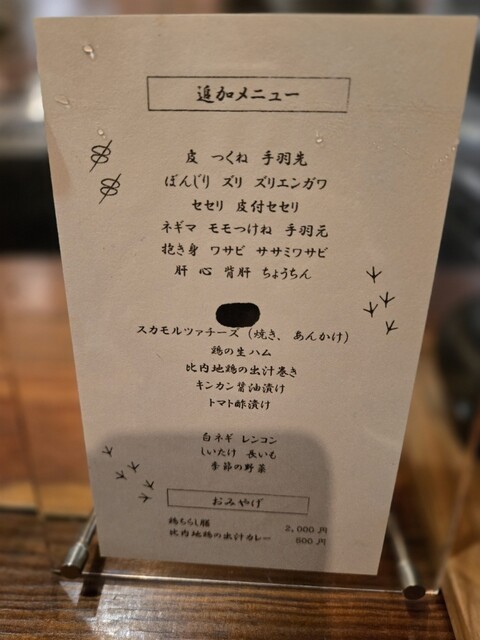 追加メニュー
皮 つくね 手羽先
ぼんじり ズリ ズリエンガワ
セセリ 皮付セセリ
ネギマ モモつけね 手羽元
抱き身 ワサビ ササミワサビ
肝 心 背肝 ちょうちん
スカモルツァチーズ (焼き、 あんかけ)
鶏の生ハム
比内地鶏の出汁巻き
キンカン醤油漬け
トマト酢漬け
白ネギ レンコン
しいたけ 長いも
季節の野菜
おみやげ
鶏ちらし膳 2,000 円
比内地鶏の出汁カレー 800 円